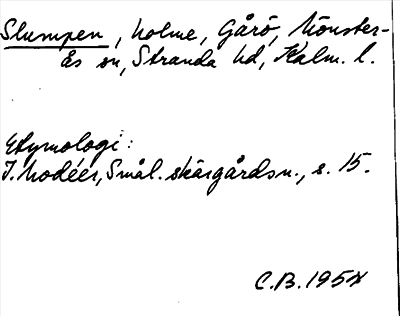 Slumpen, holme, Gårö, Mönster-
ås sn, Stranda hd, Kalm. l.
Etymologi:
I. Modéer, Smål. skärgårdsn., s. 15.
C.B. 1954